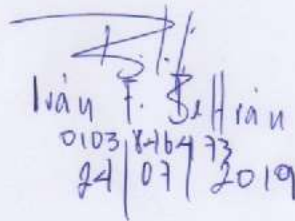 Iván F. Beltrán
0103846473
24/07/2019